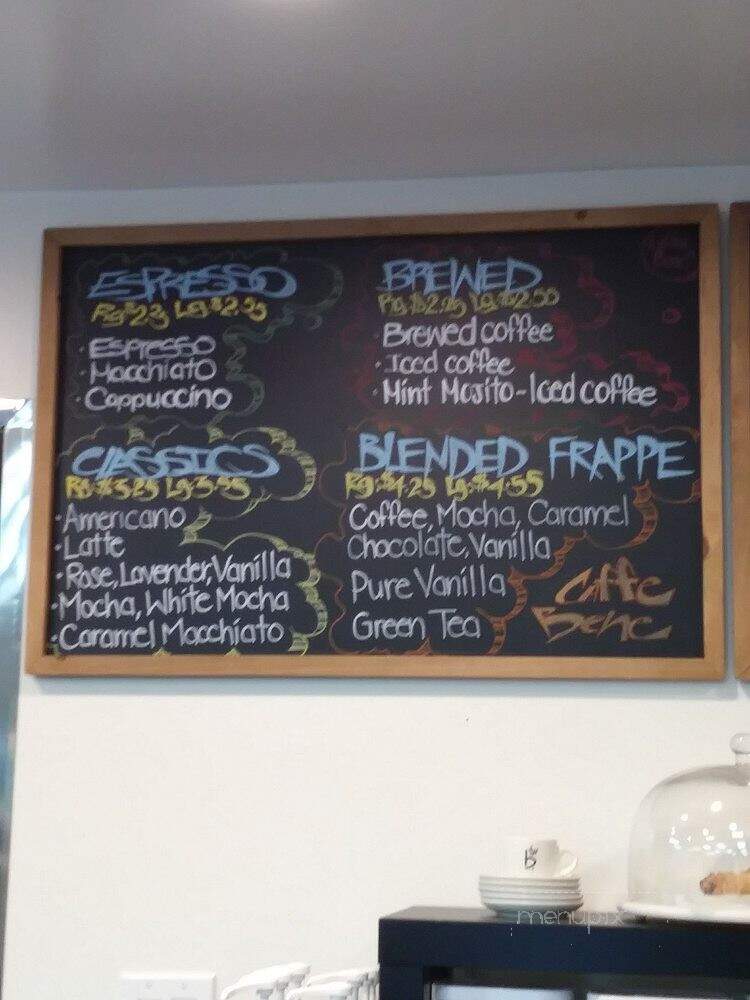 ESPRESSO
Espresso
Macchiato
Cappuccino
CLASSICS
Rg:$3.25 Lg:3.55
Americano
Latte
Rose, Lavender, Vanilla
Mocha, White Mocha
Caramel Macchiato
BREWED
Rg:$2.25 Lg:$2.50
Brewed coffee
Iced coffee
Mint Mojito-Iced coffee
BLENDED FRAPPE
Rg:$4.25 Lg:$4.55
Coffee, Mocha, Caramel
Chocolate, Vanilla
Pure Vanilla
Green Tea
Caffe
Bene
menupix